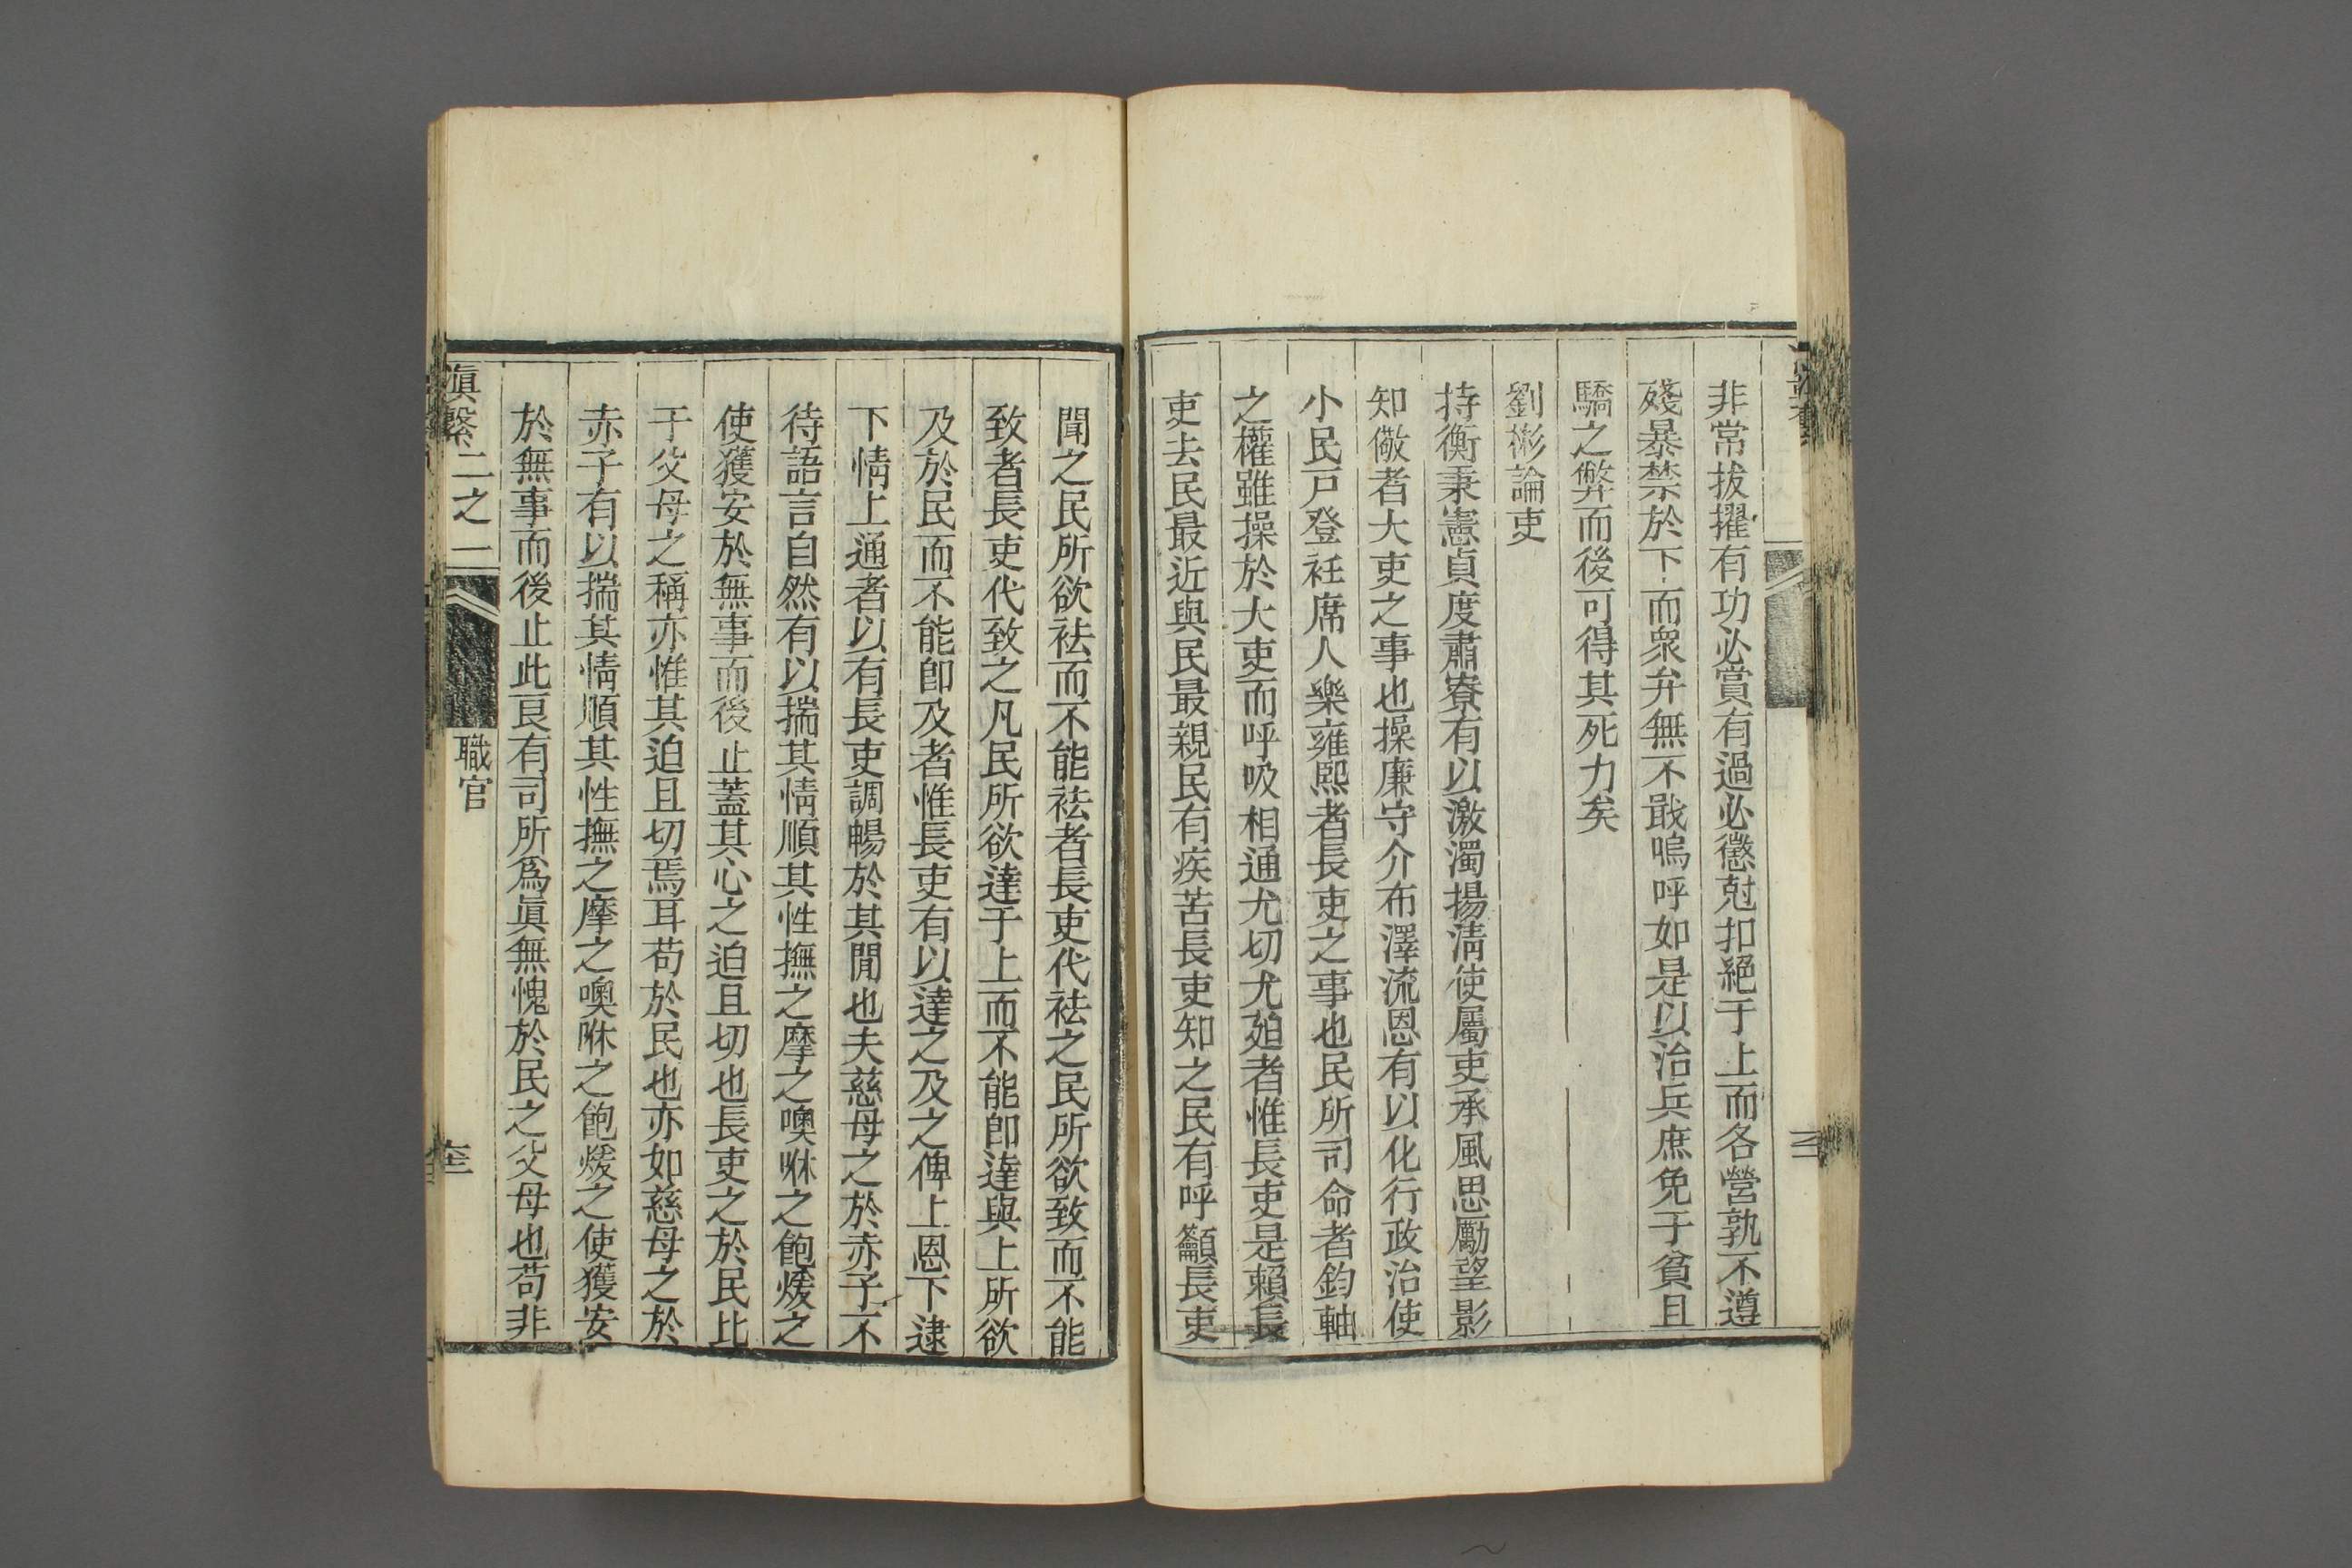 非常拔擢有功必賞有過必懲尅扣絕于上而各營孰不遵
殘暴禁於下而衆弁無不戢嗚呼如是以治兵庶免于貧且
驕之弊而後可得其死力矣
劉彬論吏
持衡秉憲貞度肅寮有以激濁揚清使屬吏承風思勵望影
知儆者大吏之事也操廉守介布澤流恩有以化行政治使
小民戸登衽席人樂雍熙者長吏之事也民所司命者鈞軸
之權雖操於大吏而呼吸相通尤切尤廹者惟長吏是賴長
吏去民最近與民最親民有疾苦長吏知之民有呼籲長吏
聞之民所欲袪而不能袪者長吏代袪之民所欲致而不能
致者長吏代致之凡民所欲達于上而不能卽達與上所欲
及於民而不能卽及者惟長吏有以達之及之俾上恩下逮
下情上通者以有長吏調暢於其閒也夫慈母之於赤子不
待語言自然有以揣其情順其性撫之摩之噢咻之飽煖之
使獲安於無事而後止蓋其心之迫且切也長吏之於民比
于父母之稱亦惟其迫且切焉耳苟於民也亦如慈母之於
赤子有以揣其情順其性撫之摩之噢咻之飽煖之使獲安
於無事而後止此良有司所爲眞無愧於民之父母也苟非
滇繫二之一 職官